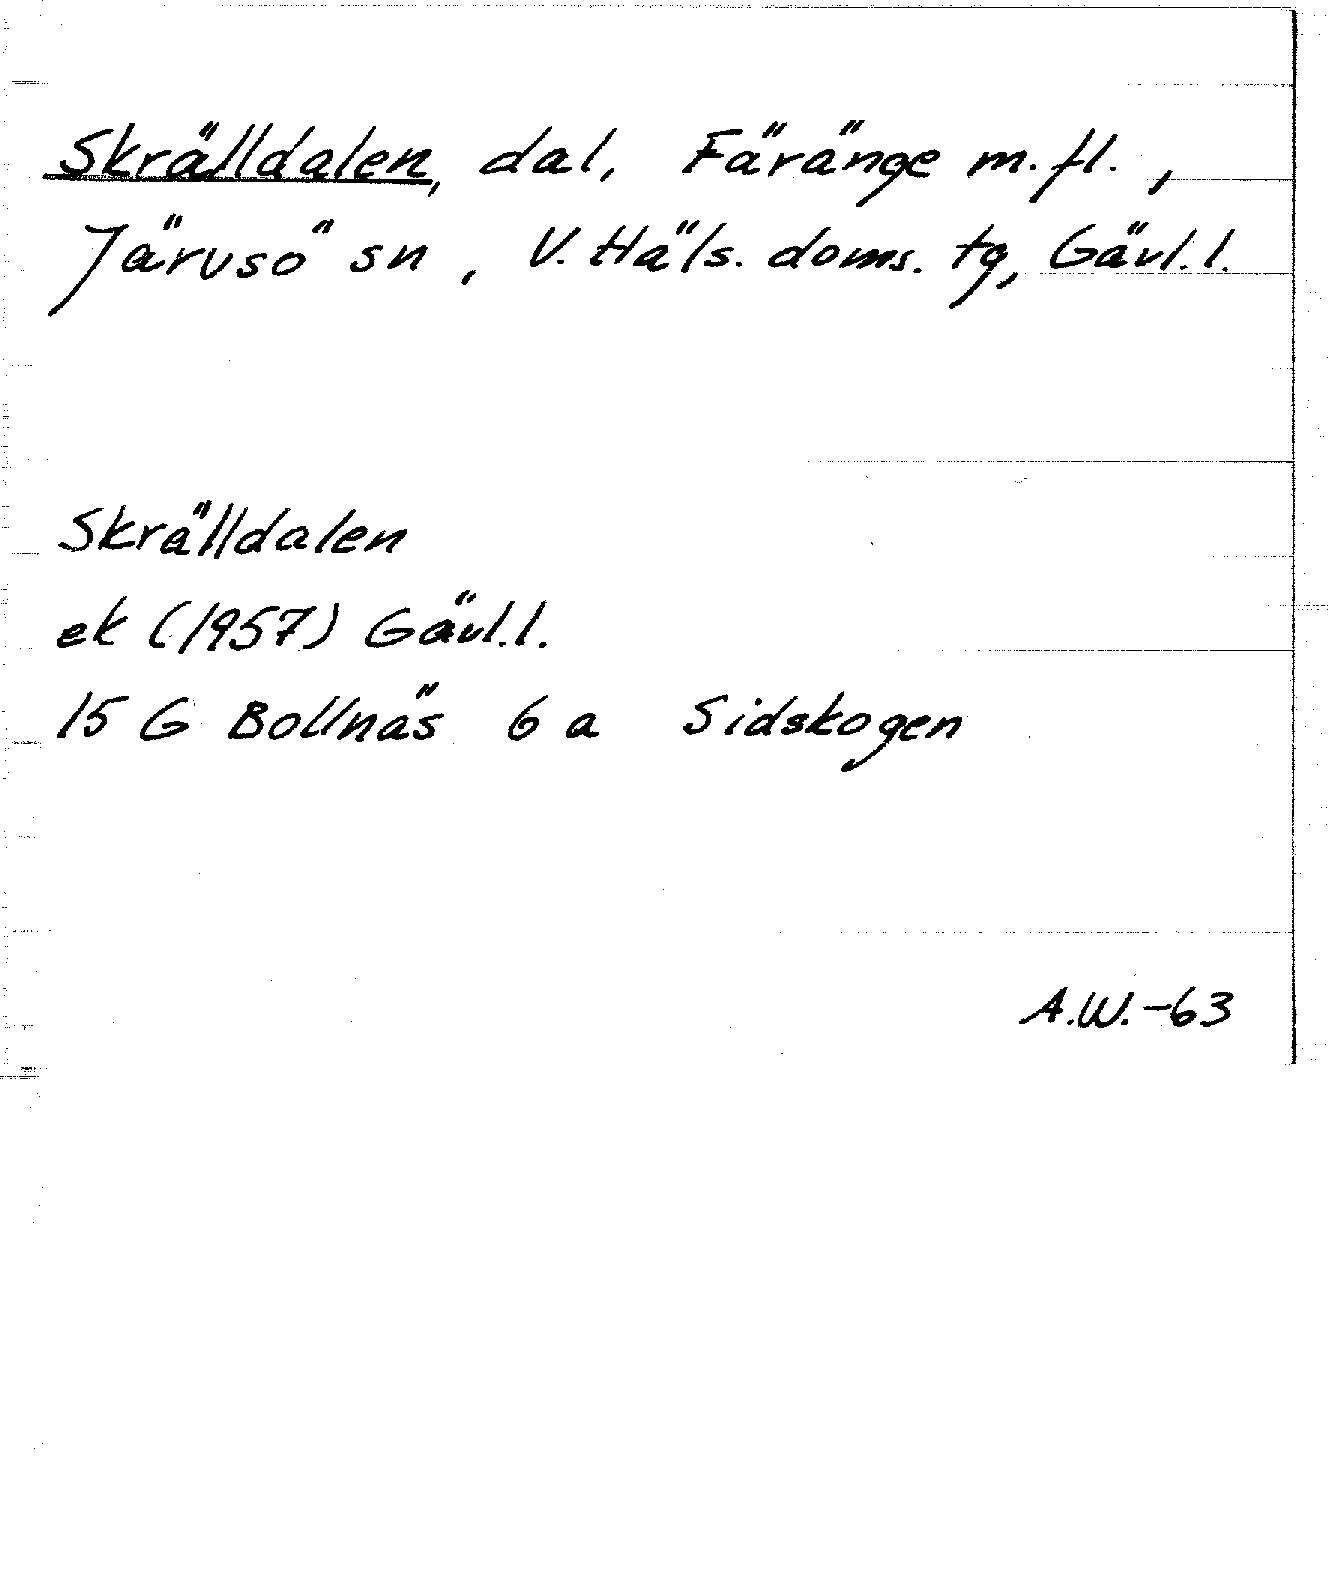 Skrälldalen, dal, Färänge m.fl.,
Järvsö sn, V. Häls. doms. tg, Gävl.l.
Skrälldalen
ek (1957) Gävl.l.
15 G Bollnäs 6 a Sidskogen
A.W.-63